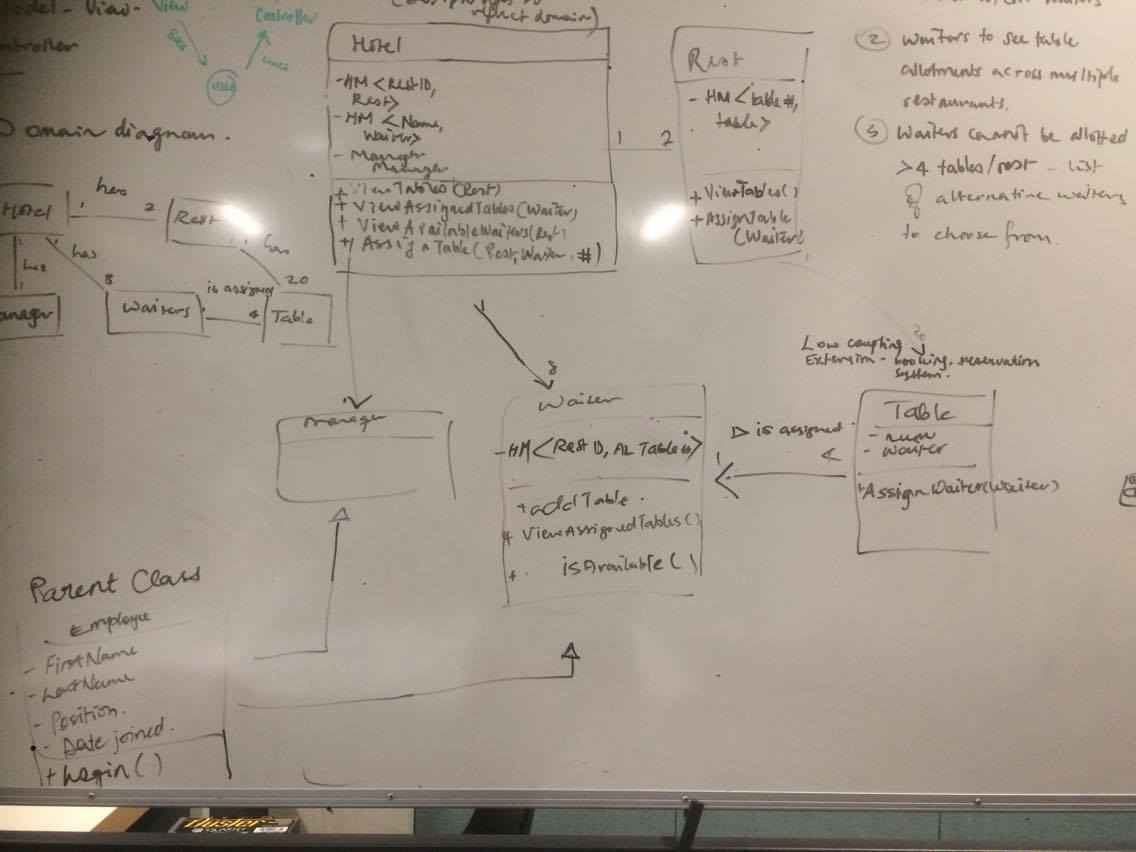 Model - View - View
Controller
sees
User
uses
Controller
Domain diagram.
Hotel
has
1
2
Rest
has
has
has
8
1
Waiters
is assigned
4
20
Table
Manager
reflect domain)
Hotel
- HM <RestID,
Rest>
- HM <Name,
Waiter>
- Manager
Manager
+ ViewTables(Rest)
+ ViewAssignedTables(Waiter)
+ ViewAvailableWaiters(Rest)
+ AssignTable(Rest, Waiter, #)
1
2
Rest
- HM <table#,
table>
+ ViewTables()
+ AssignTable
(Waiter)
② Waiters to see table
allotments across multiple
restaurants.
③ Waiters cannot be allotted
>4 tables/rest - List
of alternative waiters
to choose from.
20
Low coupling
Extension - booking, reservation
system.
Manager
1
8
Waiter
- HM<Rest ID, AL Table#>
+ addTable.
+ ViewAssignedTables()
+ isAvailable()
▷ is assigned
1
4
Table
- num
- waiter
+ AssignWaiter(Waiter)
Parent Class
Employee
- FirstName
- LastName
- Position.
- Date joined.
+ Login()
Duster
QUARTET